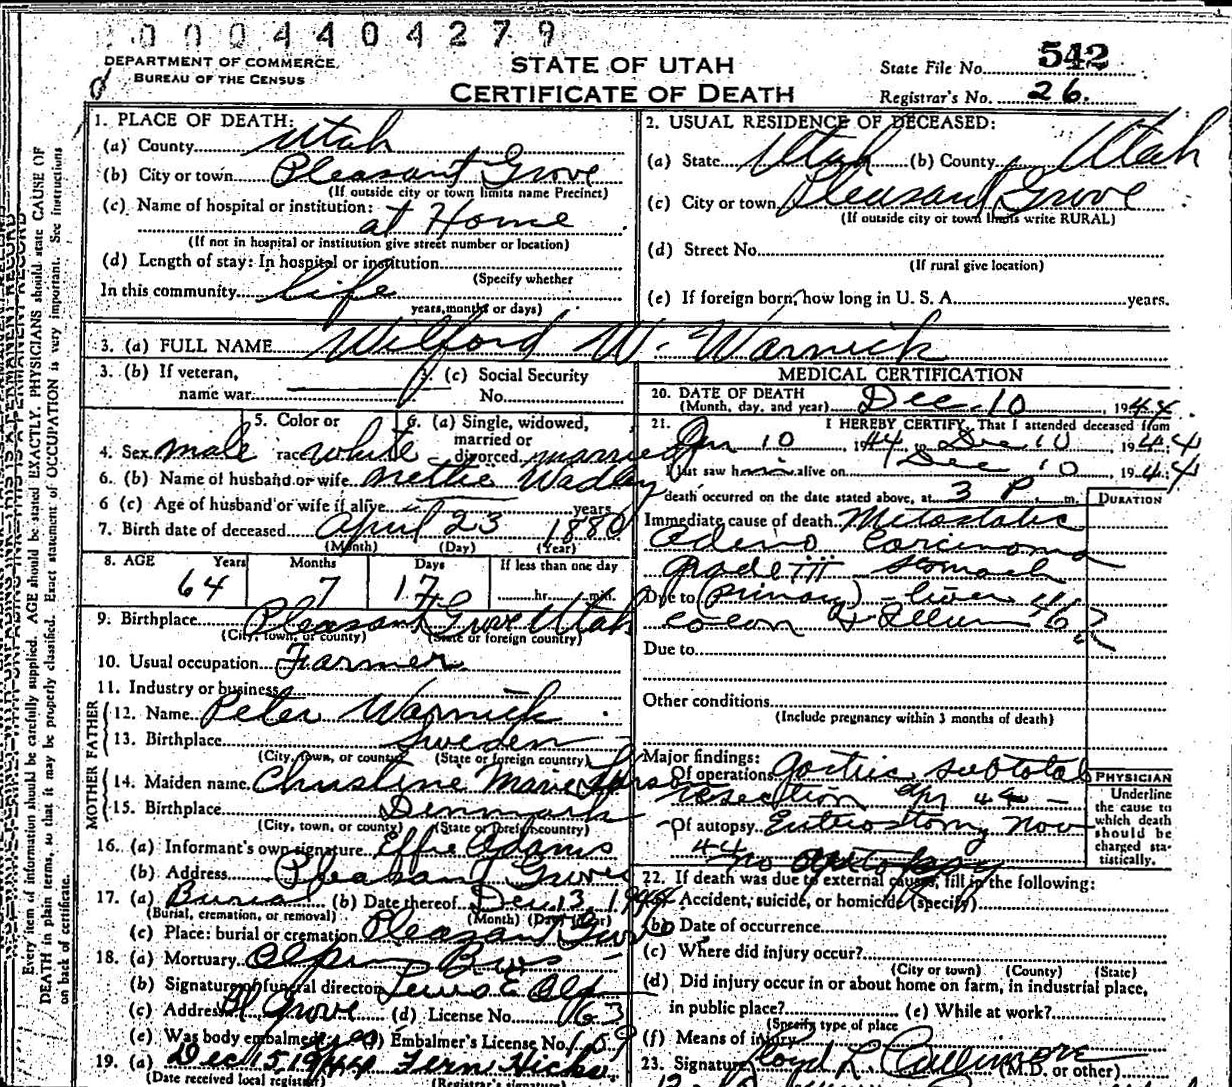 0004404279
DEPARTMENT OF COMMERCE
BUREAU OF THE CENSUS
STATE OF UTAH
CERTIFICATE OF DEATH
State File No. 542
Registrar's No. 26.
Every item of information should be carefully supplied. AGE should be stated EXACTLY. PHYSICIANS should state CAUSE OF
DEATH in plain terms, so that it may be properly classified. Exact statement of OCCUPATION is very important. See instructions
on back of certificate.
1. PLACE OF DEATH:
(a) County Utah
(b) City or town Pleasant Grove
(If outside city or town limits name Precinct)
(c) Name of hospital or institution:
at Home
(If not in hospital or institution give street number or location)
(d) Length of stay: In hospital or institution
(Specify whether
In this community life
years, months or days)
2. USUAL RESIDENCE OF DECEASED:
(a) State Utah (b) County Utah
(c) City or town Pleasant Grove
(If outside city or town limits write RURAL)
(d) Street No.
(If rural give location)
(e) If foreign born, how long in U. S. A. years.
3. (a) FULL NAME Wilford W. Warnick
3. (b) If veteran,
name war
3. (c) Social Security
No.
4. Sex male
5. Color or
race white
6. (a) Single, widowed,
married or
divorced married
6. (b) Name of husband or wife Mettie Wadley
6 (c) Age of husband or wife if alive years
7. Birth date of deceased April 23 1880
(Month) (Day) (Year)
8. AGE Years Months Days If less than one day
64 7 17 hr. min.
9. Birthplace Pleasant Grove Utah
(City, town, or county) (State or foreign country)
10. Usual occupation Farmer
11. Industry or business
FATHER
12. Name Peter Warnick
13. Birthplace Sweden
(City, town, or county) (State or foreign country)
MOTHER
14. Maiden name Christine Marie
15. Birthplace Denmark
(City, town, or county) (State or foreign country)
16. (a) Informant's own signature Effie Adams
(b) Address Pleasant Grove
17. (a) Burial (b) Date thereof Dec. 13 1944
(Burial, cremation, or removal) (Month) (Day) (Year)
(c) Place: burial or cremation Pleasant Grove
18. (a) Mortuary Olpin Bros
(b) Signature of funeral director Lewis E Olpin
(c) Address Pl Grove (d) License No. 163
(e) Was body embalmed (f) Embalmer's License No.
19. (a) Dec 15, 1944 Fern Hicks
(Date received local registrar) (Registrar's signature)
MEDICAL CERTIFICATION
20. DATE OF DEATH
(Month, day, and year) Dec. 10, 1944.
21. I HEREBY CERTIFY, That I attended deceased from
Jan 10 1944 to Dec 10, 1944
I last saw him alive on Dec 10, 1944
death occurred on the date stated above, at 3 P. m.
DURATION
Immediate cause of death Metastatic
Adeno Carcinoma
grade III stomach
Due to (Primary) - liver
colon &
Due to
Other conditions
(Include pregnancy within 3 months of death)
Major findings:
Of operations gastric, subtotal
resection Apr 44 -
Of autopsy Enterostomy Nov
44 no autopsy
PHYSICIAN
Underline
the cause to
which death
should be
charged sta-
tistically.
22. If death was due to external causes, fill in the following:
(a) Accident, suicide, or homicide (specify)
(b) Date of occurrence
(c) Where did injury occur?
(City or town) (County) (State)
(d) Did injury occur in or about home on farm, in industrial place,
in public place? (e) While at work?
(Specify type of place
(f) Means of injury
23. Signature Lloyd L. Cullimore
(M.D. or other)